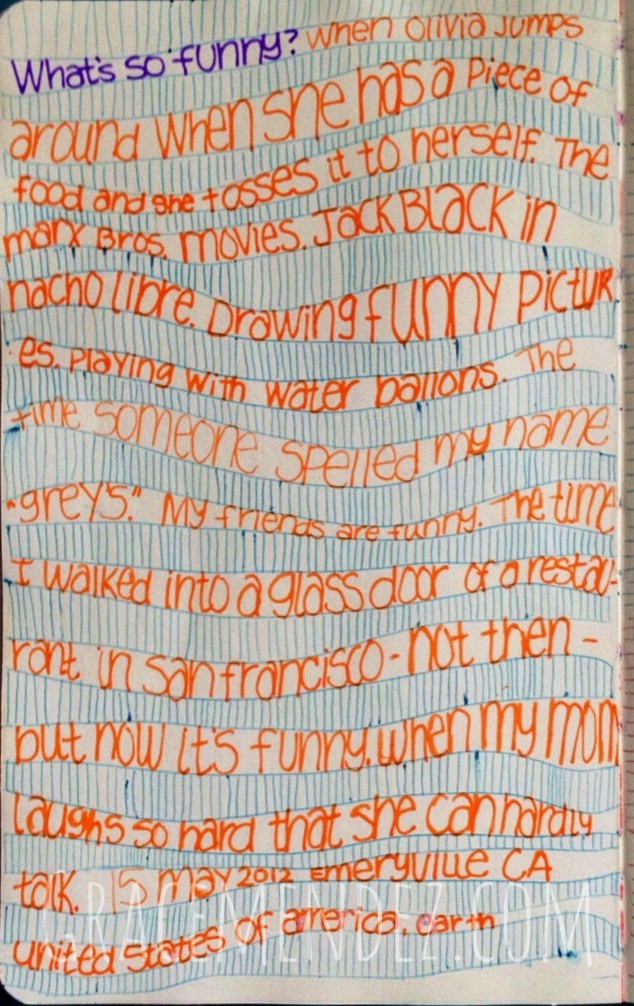 What's so funny? When Olivia Jumps
around when she has a piece of
food and she tosses it to herself. The
marx Bros. movies. Jack Black in
nacho libre. Drawing funny pictur
es. Playing with water ballons. The
time someone spelled my name
"grey's." My friends are funny. The time
I walked into a glass door of a restau-
rant in San francisco - not then -
but now it's funny. When my mom
laughs so hard that she can hardly
talk. 15 may 2012 Emeryville CA
GRACEMENDEZ.COM
united states of america, earth